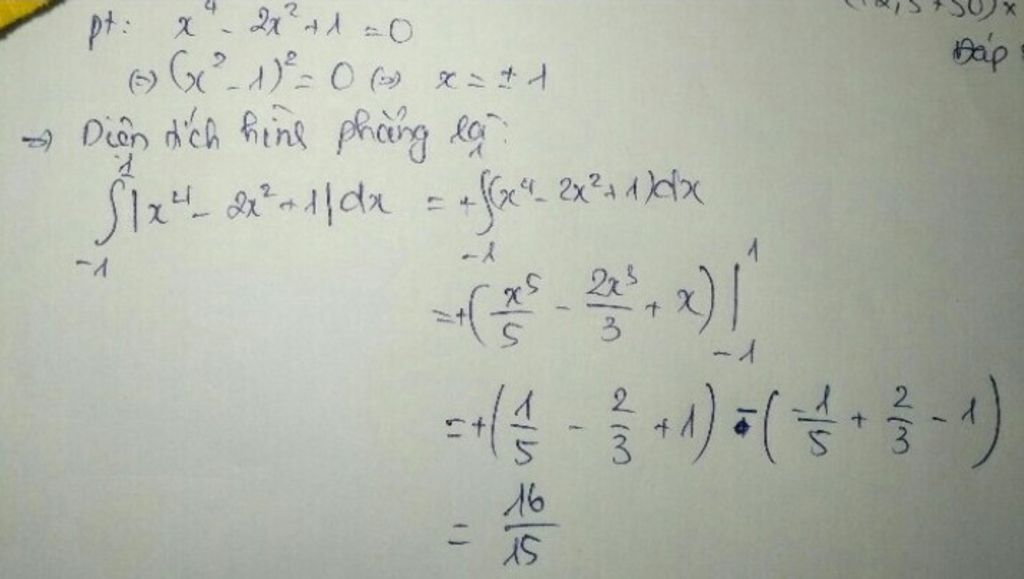 (12,5+50)x
pt: x⁴ - 2x² + 1 = 0
Đáp
(=) (x² - 1)² = 0 (=) x = ± 1
=> Diện tích hình phẳng là:
∫₋₁¹ |x⁴ - 2x² + 1| dx = + ∫₋₁¹ (x⁴ - 2x² + 1) dx
= + (x⁵/5 - 2x³/3 + x) |₋₁¹
= + (1/5 - 2/3 + 1) - (-1/5 + 2/3 - 1)
= 16/15